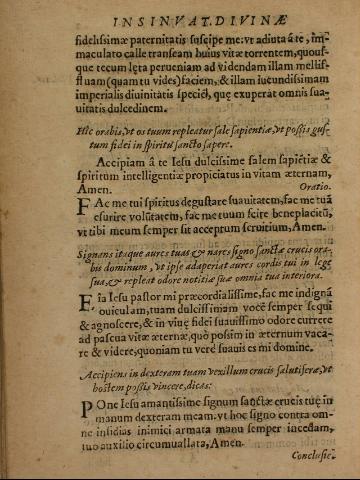 INSINVAT. DIVINÆ
fidelissimæ paternitatis suscipe me: vt adiuta á te, im-
maculato calle transeam huius vitæ torrentem, quous-
que tecum lęta perueniam ad videndam illam mellif-
fluam (quam tu vides) faciem, & illam iucundissimam
imperialis diuinitatis speciē, quę exuperat omnis sua-
uitatis dulcedinem.
Hîc orabis, vt os tuum repleatur sale sapientiæ, vt possis gus-
tum fidei in spiritu sancto sapere.
Accipiam á te Iesu dulcissime salem sapiētiæ &
spiritum intelligentiæ propiciatus in vitam æternam,
Amen. Oratio.
FAc me tui spiritus degustare suauitatem, fac me tuā
esurire volūtatem, fac me tuum scire beneplacitū,
vt tibi meum semper sit acceptum seruitium, Amen.
Signans itaque aures tuas & nares signo sanctæ crucis ora-
bis dominum, vt ipse adaperiat aures cordis tui in lege
sua, & repleat odore notitiæ suæ omnia tua interiora.
EIa Iesu pastor mi præcordialissime, fac me indignā
ouiculam, tuam dulcissimam vocē semper sequi
& agnoscere, & in viuę fidei suauissimo odore currere
ad pascua vitæ æternæ, quò possim in æternum vaca-
re & videre, quoniam tu verè suauis es mi domine.
Accipiens in dexteram tuam vexillum crucis salutiferæ, vt
hostem possis vincere, dicas:
POne Iesu amantissime signum sanctæ crucis tuę in
manum dexteram meam, vt hoc signo contra om-
ne insidias inimici armata manu semper incedam,
tuo auxilio circumuallata, Amen.
Conclusic.